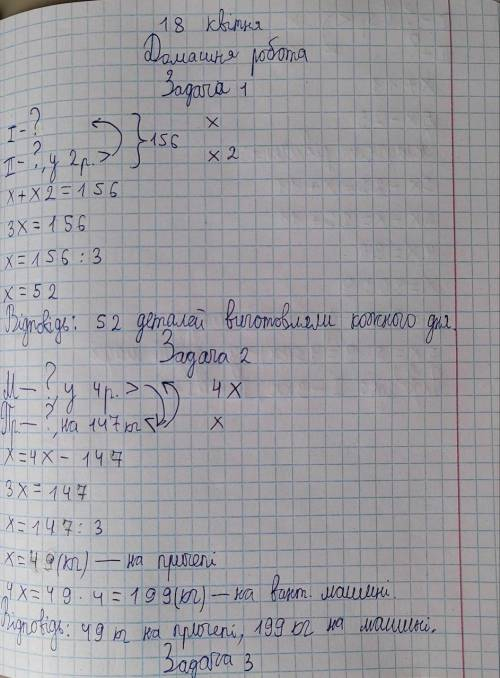 18 квітня
Домашня робота
Задача 1
I - ? } 156 x
II - ?, у 2 р. > x 2
x + x 2 = 156
3x = 156
x = 156 : 3
x = 52
Відповідь: 52 деталей виготовляли кожного дня.
Задача 2
М — ?, у 4 р. > 4x
Пр — ?, на 147 кг < x
x = 4x - 147
3x = 147
x = 147 : 3
x = 49 (кг) — на причепі
4x = 49 · 4 = 199 (кг) — на вант. машині.
Відповідь: 49 кг на причепі, 199 кг на машині.
Задача 3